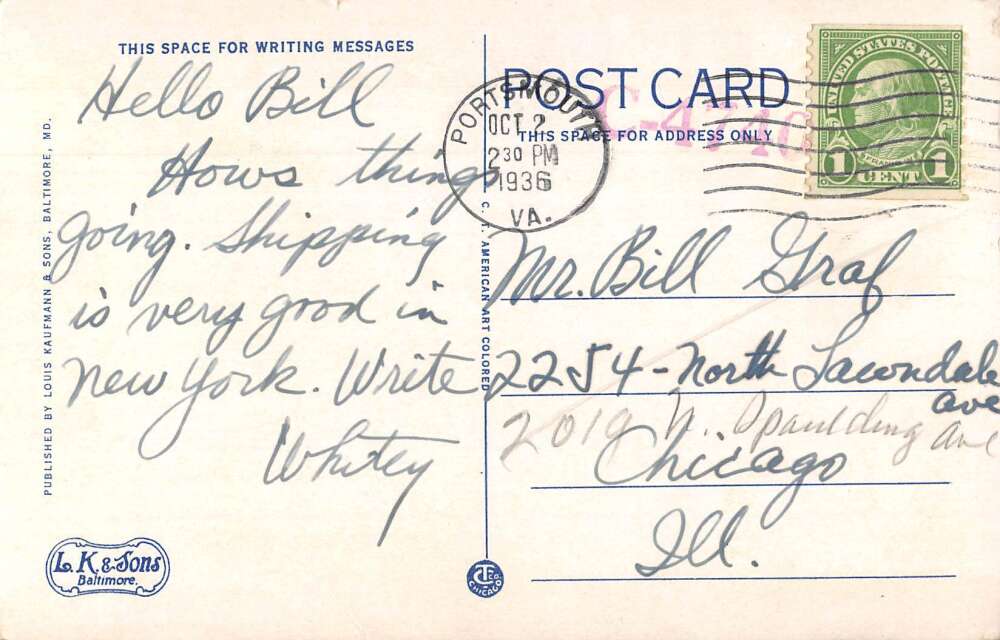 THIS SPACE FOR WRITING MESSAGES
Hello Bill
Hows things
going. Shipping
is very good in
New York. Write
Whitey
PUBLISHED BY LOUIS KAUFMANN & SONS, BALTIMORE, MD.
L. K. & Sons
Baltimore.
C. T. AMERICAN ART COLORED
CTCo
CHICAGO
POST CARD
THIS SPACE FOR ADDRESS ONLY
C-4740
PORTSMOUTH
OCT 2
230 PM
1936
VA.
UNITED STATES POSTAGE
FRANKLIN
1 CENT 1
Mr. Bill Graf
2254-North Lawndale
ave
2019 N. Spaulding Ave
Chicago
Ill.